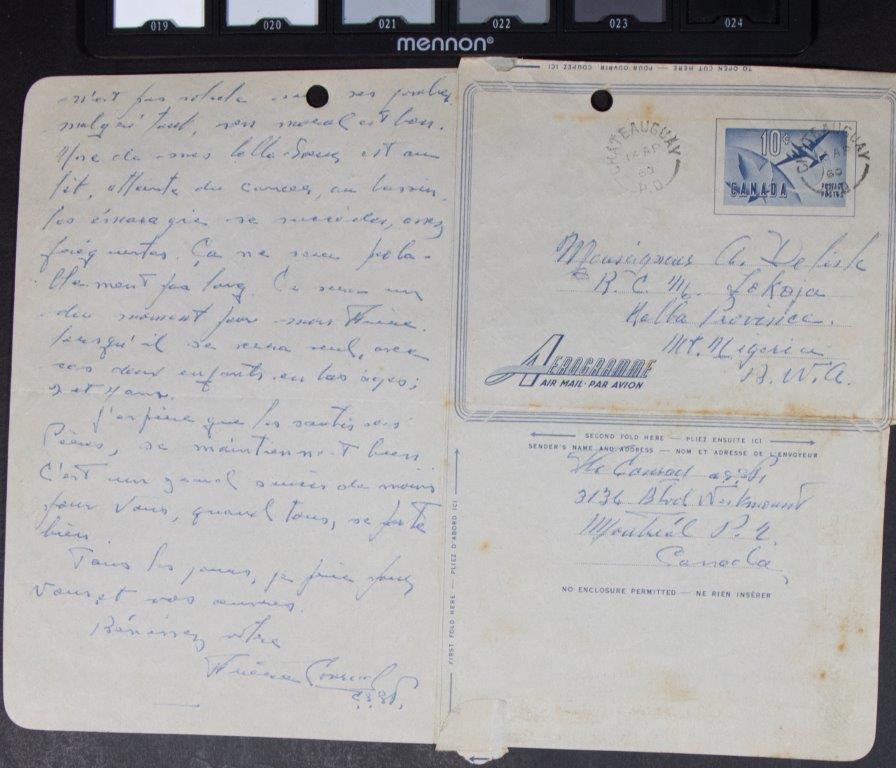 019 020 021 022 023 024
mennon®
n'est pas solide sur ses jambes
malgré tout, son moral est bon.
Une de mes belle-Soeur est au
lit, atteinte du cancer, au bassin,
les émoragies se succèdes, assez
fréquentes. Ça ne sera proba-
blement pas long. Ce sera un
dur moment pour mon Frère.
lorsqu'il se verra seul, avec
ses deux enfants en bas âges;
J'espère que les santés des
Pères, se maintiennent bien
C'est un grand soucis de moins
pour vous, quand tous, se porte
bien.
Tous les jours, je prie pour
vous et vos oeuvres.
Bénissez votre
Frère Conrad
TO OPEN CUT HERE — POUR OUVRIR COUPEZ ICI
CHATEAUGUAY
P.Q.
10¢
CANADA
POSTAGE
POSTES
Monseigneur A. Delisle
R. C. M. Lokoja
Kabba Province.
Nigeria
B. W. A.
AEROGRAMME
AIR MAIL · PAR AVION
SECOND FOLD HERE — PLIEZ ENSUITE ICI
SENDER'S NAME AND ADDRESS — NOM ET ADRESSE DE L'ENVOYEUR
Conrad
3136 Blvd Westmount
Montréal P. Q.
Canada
NO ENCLOSURE PERMITTED — NE RIEN INSÉRER
FIRST FOLD HERE — PLIEZ D'ABORD ICI